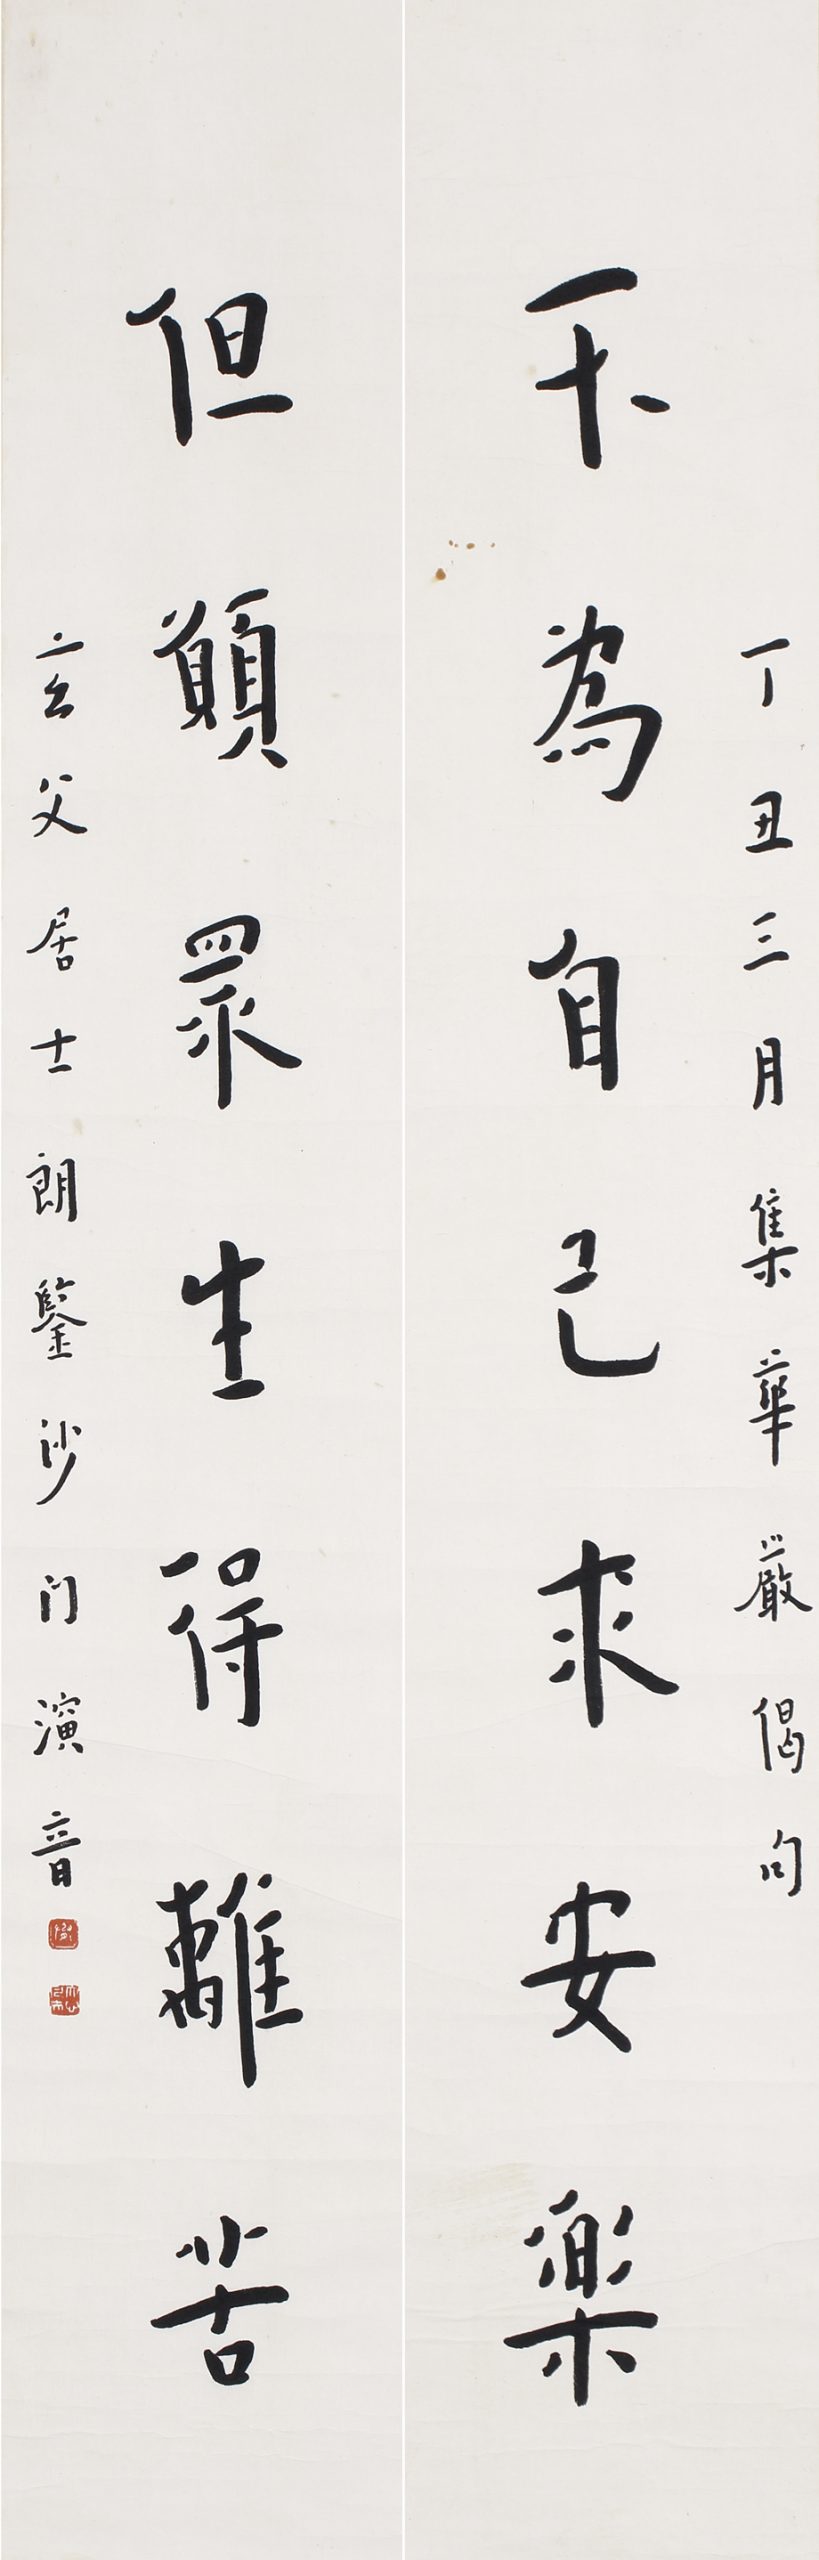 丁丑三月集華嚴偈句
不為自己求安樂
但願眾生得離苦
玄父居士朗鑒沙门演音